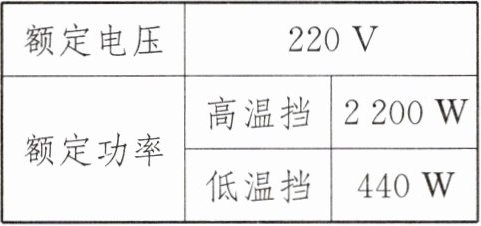 额定电压 220 V
额定功率 高温挡 2 200 W
低温挡 440 W